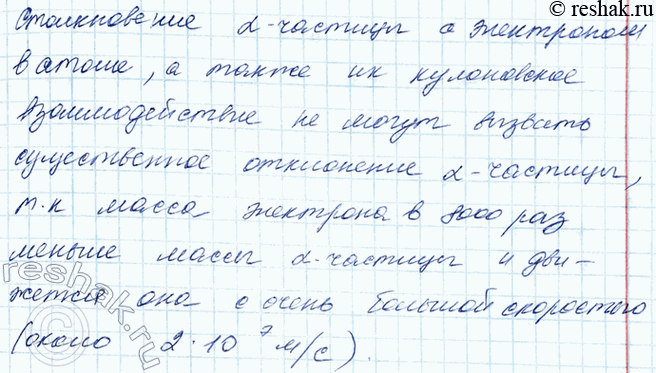 © reshak.ru
Столкновение α-частицы с электроном
в атоме, а также их кулоновское
взаимодействие не могут вызвать
существенное отклонение α-частицы,
т.к масса электрона в 8000 раз
меньше массы α-частицы и дви-
жется она с очень большой скоростью
(около 2·10⁷ м/с).
reshak.ru